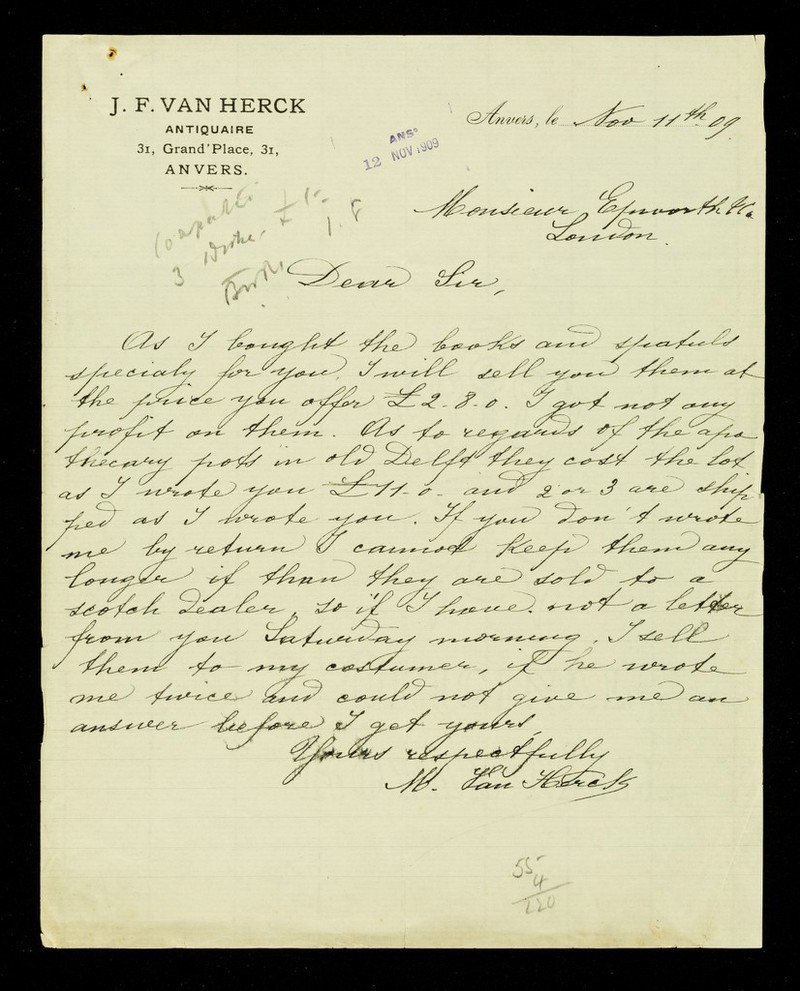 J. F. VAN HERCK
ANTIQUAIRE
31, Grand'Place, 31,
ANVERS.
Anvers, le Nov 11th 09
ANSD
12 NOV 1909
Monsieur Epworth &Co
London.
3
£ 1-
1. 8
Dear Sir,
As I bought the books and spatuls
specialy for you, I will sell you them at
the price you offer £ 2-8-0. I got not any
profit on them. As to regards of the apo
thecary pots in old Delft they cost the lot
as I wrote you £ 11-0- and 2 or 3 are ship
ped as I wrote you. If you don't wrote
me by return I cannot keep them any
longer if than they are sold to a
scotch dealer, so if I have not a letter
from you Saturday morning, I sell
them to my costumer, if he wrote
me twice and could not give me an
answer before I get yours.
Yours respectfully
M. Van Herck
55-
4
220